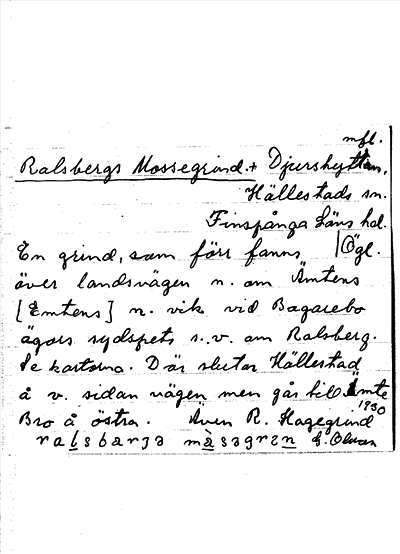 mfl.
Ralsbergs Mossegrind.+ Djurshyttan,
Hällestads sn.
Finspånga läns hd.
En grind, som förr fanns Ögl.
över landsvägen n. om Ämtens
[Emtens] n. vik vid Bagarebo
ägors sydspets s.v. om Ralsberg.
Se kartorna. Där slutar Hällestad
å v. sidan vägen men går till Ämte
Bro å östra. Även R. Hagegrind
1930
ralsbarja måsagren